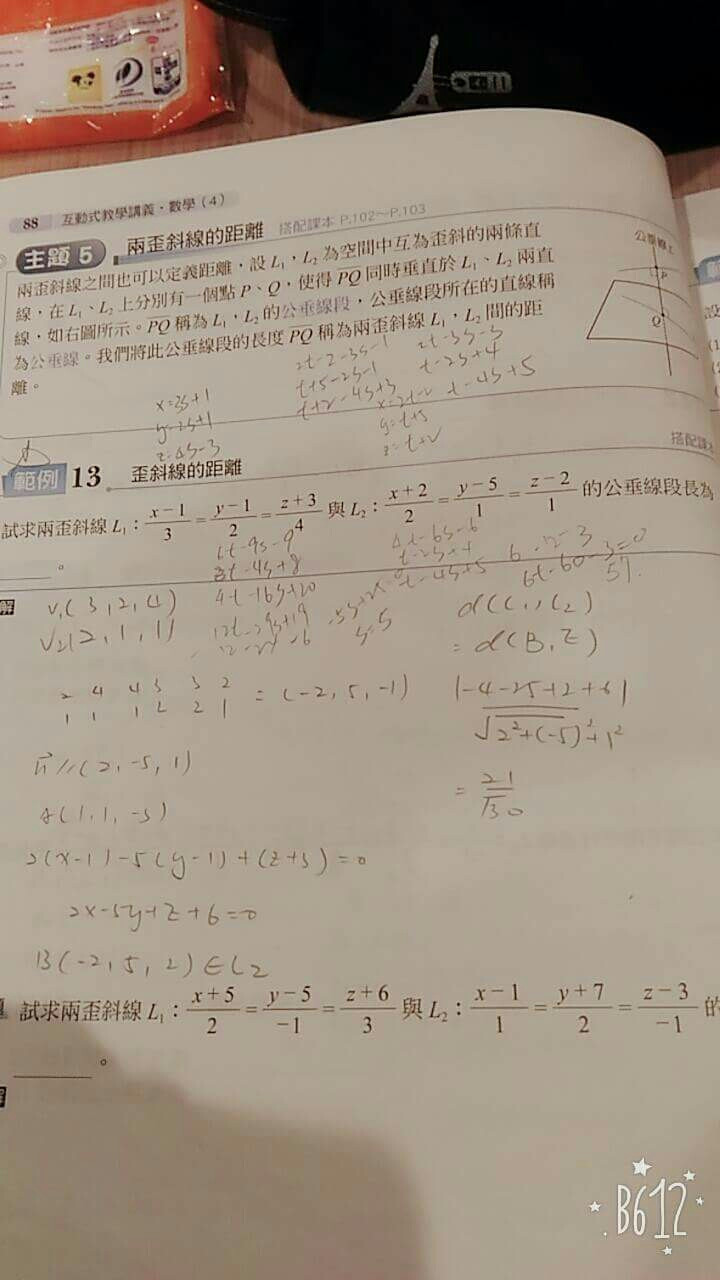 88 互動式教學講義・數學(4)
主題5 兩歪斜線的距離 搭配課本 P.102~P.103
兩歪斜線之間也可以定義距離,設 L₁,L₂ 為空間中互為歪斜的兩條直
線,在 L₁、L₂ 上分別有一個點 P、Q,使得 PQ 同時垂直於 L₁、L₂ 兩直
線,如右圖所示。PQ 稱為 L₁,L₂ 的公垂線段,公垂線段所在的直線稱
為公垂線。我們將此公垂線段的長度 PQ 稱為兩歪斜線 L₁,L₂ 間的距
離。
公垂線
P
Q
x=3s+1
y=2s+1
z=4s-3
2t-2-3s-1
t+5-2s-1
t+2-4s+3
2t-3s-3
t-2s+4
t-4s+5
x=2t-2
y=t+5
z=t+2
範例 13 歪斜線的距離
搭配課
試求兩歪斜線 L₁:(x-1)/3=(y-1)/2=(z+3)/4 與 L₂:(x+2)/2=(y-5)/1=(z-2)/1 的公垂線段長為
。
6t-9s-9
4t-16s+20
4t-6s-6
t-4s+5
解
V₁(3,2,4)
V₂(2,1,1)
2 4 4 3 3 2
1 1 1 2 2 1 =(-2,5,-1)
n⃗//(2,-5,1)
A(1,1,-3)
2(x-1)-5(y-1)+(z+3)=0
2x-5y+z+6=0
B(-2,5,2)∈L₂
d(L₁,L₂)
=d(B,E)
|-4-25+2+6|
√2²+(-5)²+1²
=21/√30
試求兩歪斜線 L₁:(x+5)/2=(y-5)/-1=(z+6)/3 與 L₂:(x-1)/1=(y+7)/2=(z-3)/-1 的
。
解
B612